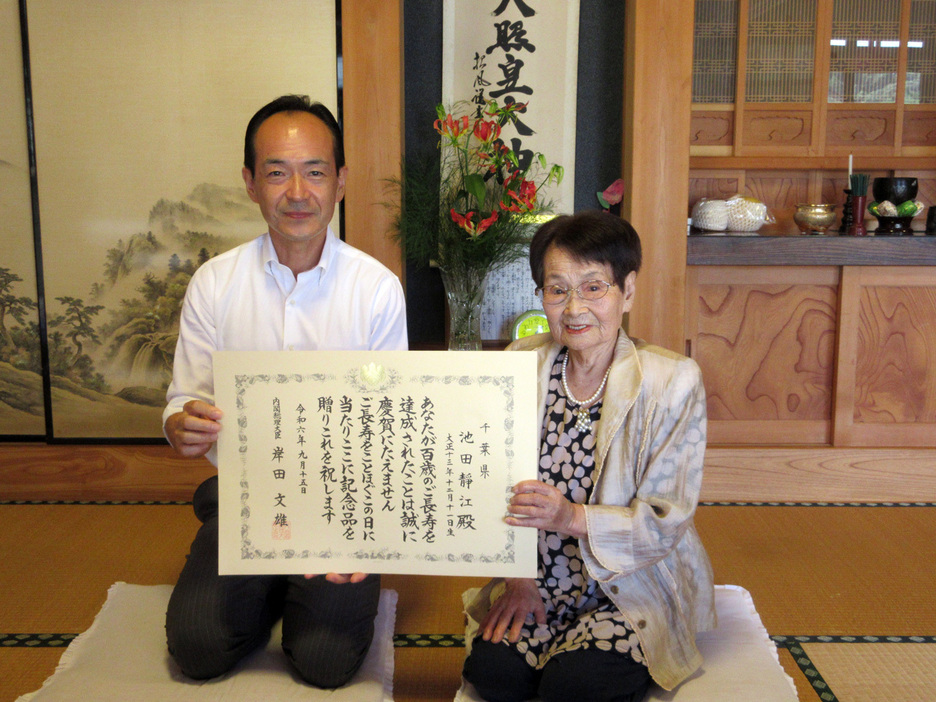 千葉県
池田靜江殿
大正十三年十二月十一日生
あなたが百歳のご長寿を
達成されたことは誠に
慶賀にたえません
ご長寿をことほぐこの日に
当たりここに記念品を
贈りこれを祝します
令和六年九月十五日
内閣総理大臣 岸田文雄
照皇大神